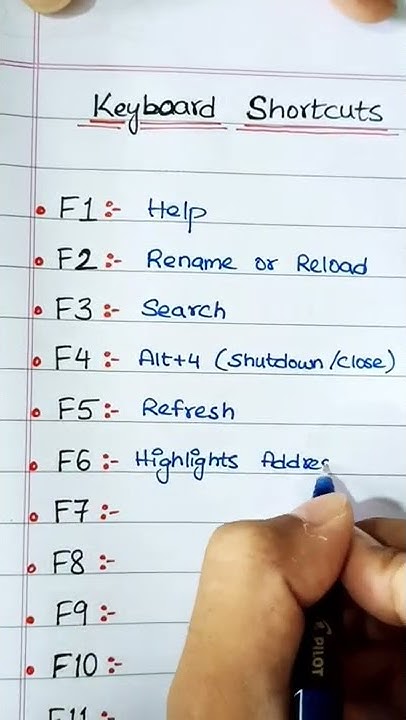 Keyboard Shortcuts
• F1:- Help
• F2:- Rename or Reload
• F3:- Search
• F4:- Alt+4 (Shutdown/Close)
• F5:- Refresh
• F6:- Highlights Addres
• F7:-
• F8:-
• F9:-
• F10:-
F11:-
PILOT